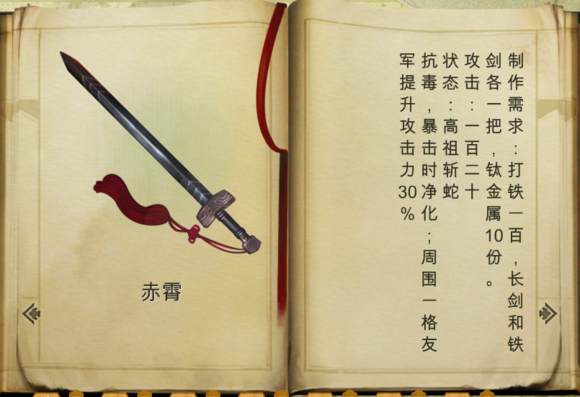 赤霄
制作需求：打铁一百，长剑和铁
剑各一把，钛金属10份。
攻击：一百二十
状态：高祖斩蛇
抗毒，暴击时净化；周围一格友
军提升攻击力30%